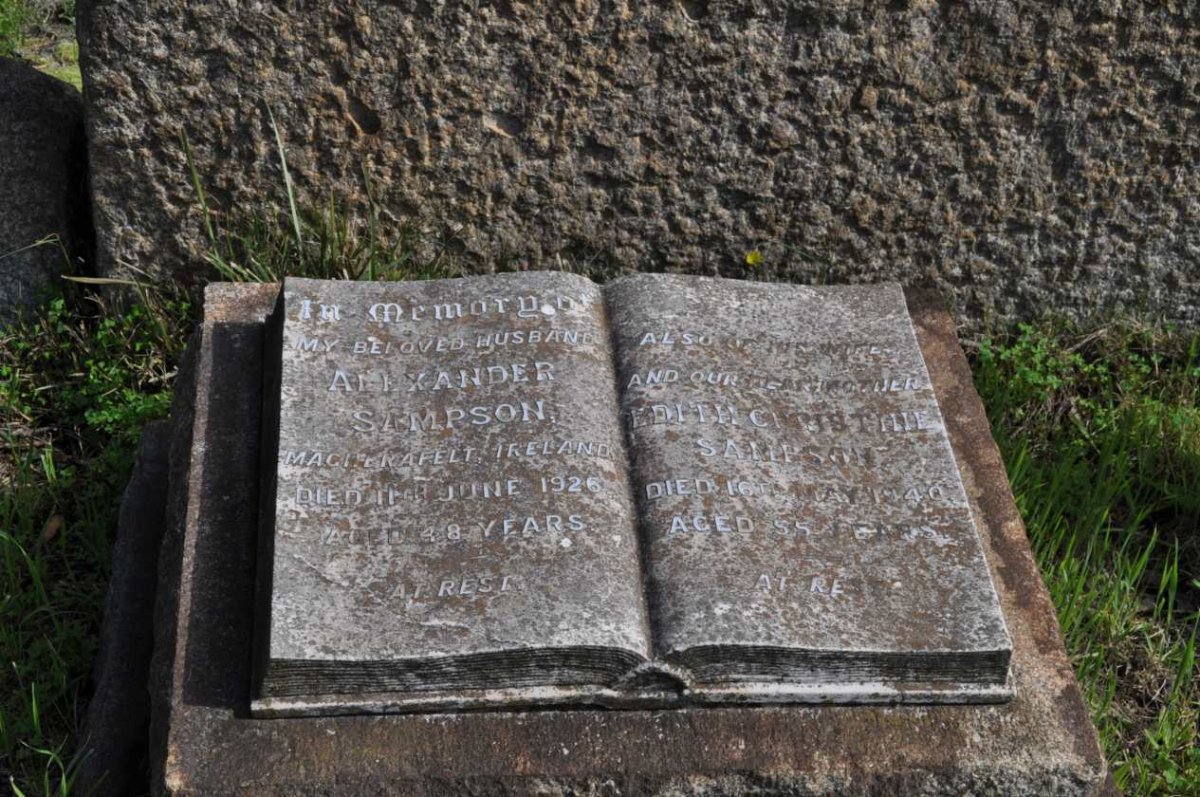 In Memory of
MY BELOVED HUSBAND
ALEXANDER
SAMPSON,
MAGHERAFELT, IRELAND
DIED 11TH JUNE 1926
AGED 48 YEARS.
AT REST.
ALSO OF HIS WIFE,
AND OUR DEAR MOTHER
EDITH CHRISTINE
SAMPSON
DIED 16TH MAY 1940
AGED 55 YEARS.
AT RE